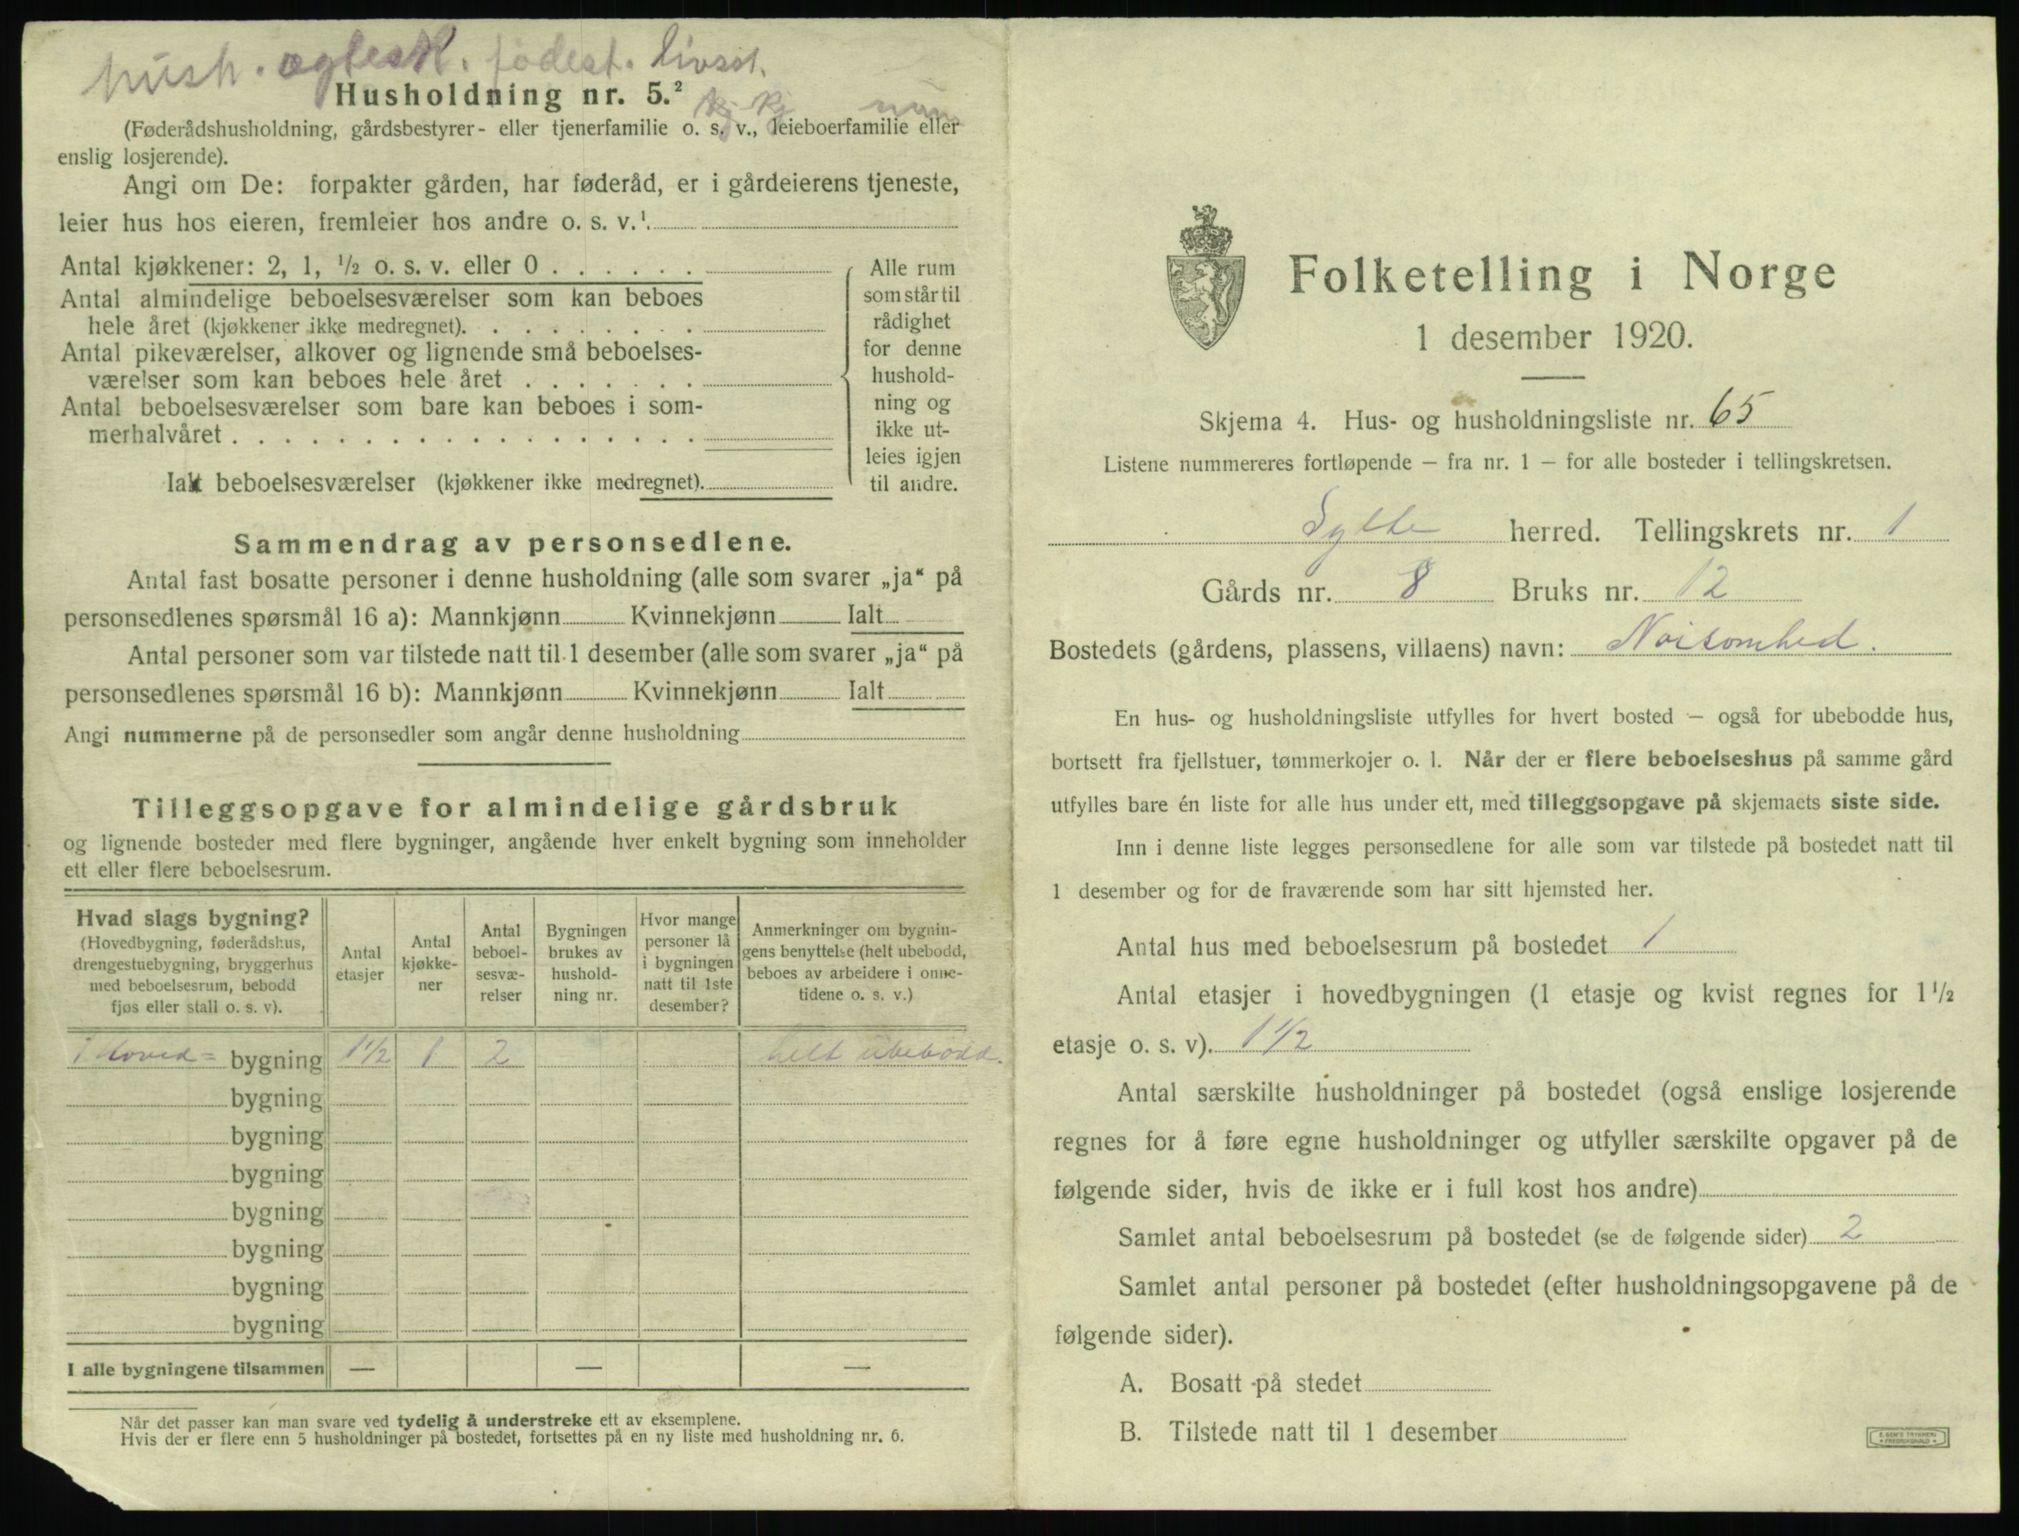 hush. ogtesk. fødest. livsst.
Husholdning nr. 5.²
(Føderådshusholdning, gårdsbestyrer- eller tjenerfamilie o. s. v., leieboerfamilie eller
enslig losjerende).
Angi om De: forpakter gården, har føderåd, er i gårdeierens tjeneste,
leier hus hos eieren, fremleier hos andre o. s. v.¹
Antal kjøkkener: 2, 1, ½ o. s. v. eller 0 . . . . . .
Antal almindelige beboelsesværelser som kan beboes
hele året (kjøkkener ikke medregnet). . . . . . . . .
Antal pikeværelser, alkover og lignende små beboelses-
værelser som kan beboes hele året . . . . . . .
Antal beboelsesværelser som bare kan beboes i som-
merhalvåret . . . . . . . . . . . . . . . . .
Ialt beboelsesværelser (kjøkkener ikke medregnet).
Alle rum
som står til
rådighet
for denne
hushold-
ning og
ikke ut-
leies igjen
til andre.
Sammendrag av personsedlene.
Antal fast bosatte personer i denne husholdning (alle som svarer „ja“ på
personsedlenes spørsmål 16 a): Mannkjønn Kvinnekjønn Ialt
Antal personer som var tilstede natt til 1 desember (alle som svarer „ja“ på
personsedlenes spørsmål 16 b): Mannkjønn Kvinnekjønn Ialt
Angi nummerne på de personsedler som angår denne husholdning
Tilleggsopgave for almindelige gårdsbruk
og lignende bosteder med flere bygninger, angående hver enkelt bygning som inneholder
ett eller flere beboelsesrum.
Hvad slags bygning?
(Hovedbygning, føderådshus,
drengestuebygning, bryggerhus
med beboelsesrum, bebodd
fjøs eller stall o. s. v).
Antal
etasjer
Antal
kjøkke-
ner
Antal
beboel-
sesvæ-
relser
Bygningen
brukes av
hushold-
ning nr.
Hvor mange
personer lå
i bygningen
natt til 1ste
desember?
Anmerkninger om bygnin-
gens benyttelse (helt ubebodd,
beboes av arbeidere i onne-
tidene o. s. v.)
1 Hoved= bygning 1½ 1 2 helt ubebodd.
bygning
bygning
bygning
bygning
bygning
bygning
bygning
I alle bygningene tilsammen — — —
Når det passer kan man svare ved tydelig å understreke ett av eksemplene.
Hvis der er flere enn 5 husholdninger på bostedet, fortsettes på en ny liste med husholdning nr. 6.
Folketelling i Norge
1 desember 1920.
Skjema 4. Hus- og husholdningsliste nr. 65
Listene nummereres fortløpende — fra nr. 1 — for alle bosteder i tellingskretsen.
Sylte herred. Tellingskrets nr. 1
Gårds nr. 8 Bruks nr. 12
Bostedets (gårdens, plassens, villaens) navn: Noisomhed.
En hus- og husholdningsliste utfylles for hvert bosted — også for ubebodde hus,
bortsett fra fjellstuer, tømmerkojer o. l. Når der er flere beboelseshus på samme gård
utfylles bare én liste for alle hus under ett, med tilleggsopgave på skjemaets siste side.
Inn i denne liste legges personsedlene for alle som var tilstede på bostedet natt til
1 desember og for de fraværende som har sitt hjemsted her.
Antal hus med beboelsesrum på bostedet 1
Antal etasjer i hovedbygningen (1 etasje og kvist regnes for 1½
etasje o. s. v). 1½
Antal særskilte husholdninger på bostedet (også enslige losjerende
regnes for å føre egne husholdninger og utfyller særskilte opgaver på de
følgende sider, hvis de ikke er i full kost hos andre)
Samlet antal beboelsesrum på bostedet (se de følgende sider) 2
Samlet antal personer på bostedet (efter husholdningsopgavene på de
følgende sider).
A. Bosatt på stedet
B. Tilstede natt til 1 desember